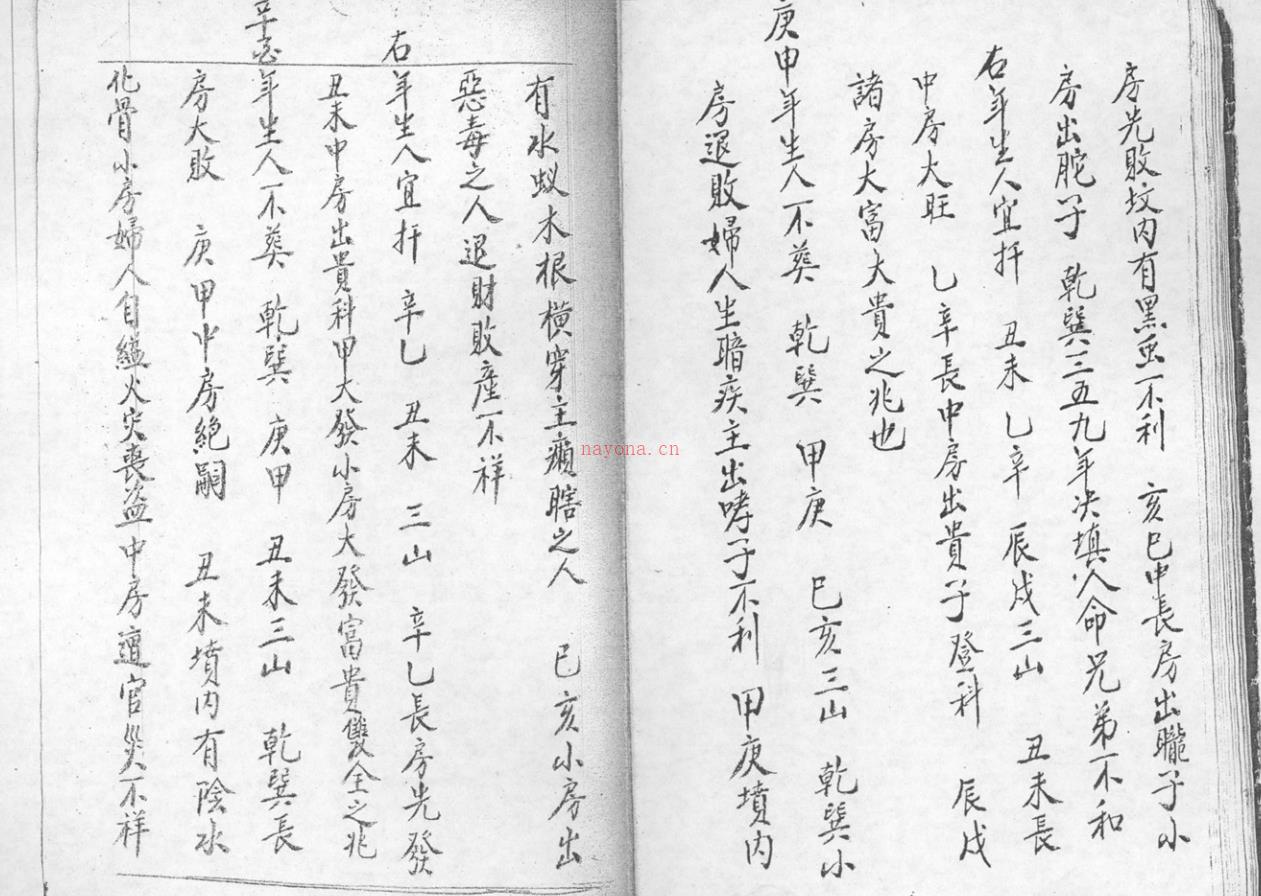 房先敗坟内有黑虫不利 亥巳中長房出矓子小
房出駝子 乾巽三五九年决填人命兄弟不和
右年生人宜扦 丑未 乙辛 辰戌三山 丑未長
中房大旺 乙辛長中房出貴子登科 辰戌
諸房大富大貴之兆也
庚申年生人不葵 乾巽 甲庚 巳亥三山 乾巽小
房退敗婦人生暗疾主出哮子不利 甲庚墳内
有水蚁木根橫穿主癩瞎之人 巳亥小房出
惡毒之人退財敗産不祥
右年生人宜扦 辛乙 丑未 三山 辛乙長房先發
丑未中房出貴科甲大發小房大發富貴雙全之兆
辛酉年生人不葵 乾巽 庚甲 丑未三山 乾巽長
房大敗 庚甲中房絕嗣 丑未墳内有陰水
化骨小房婦人自縊火灾喪盗中房遭官災不祥
nayona.cn